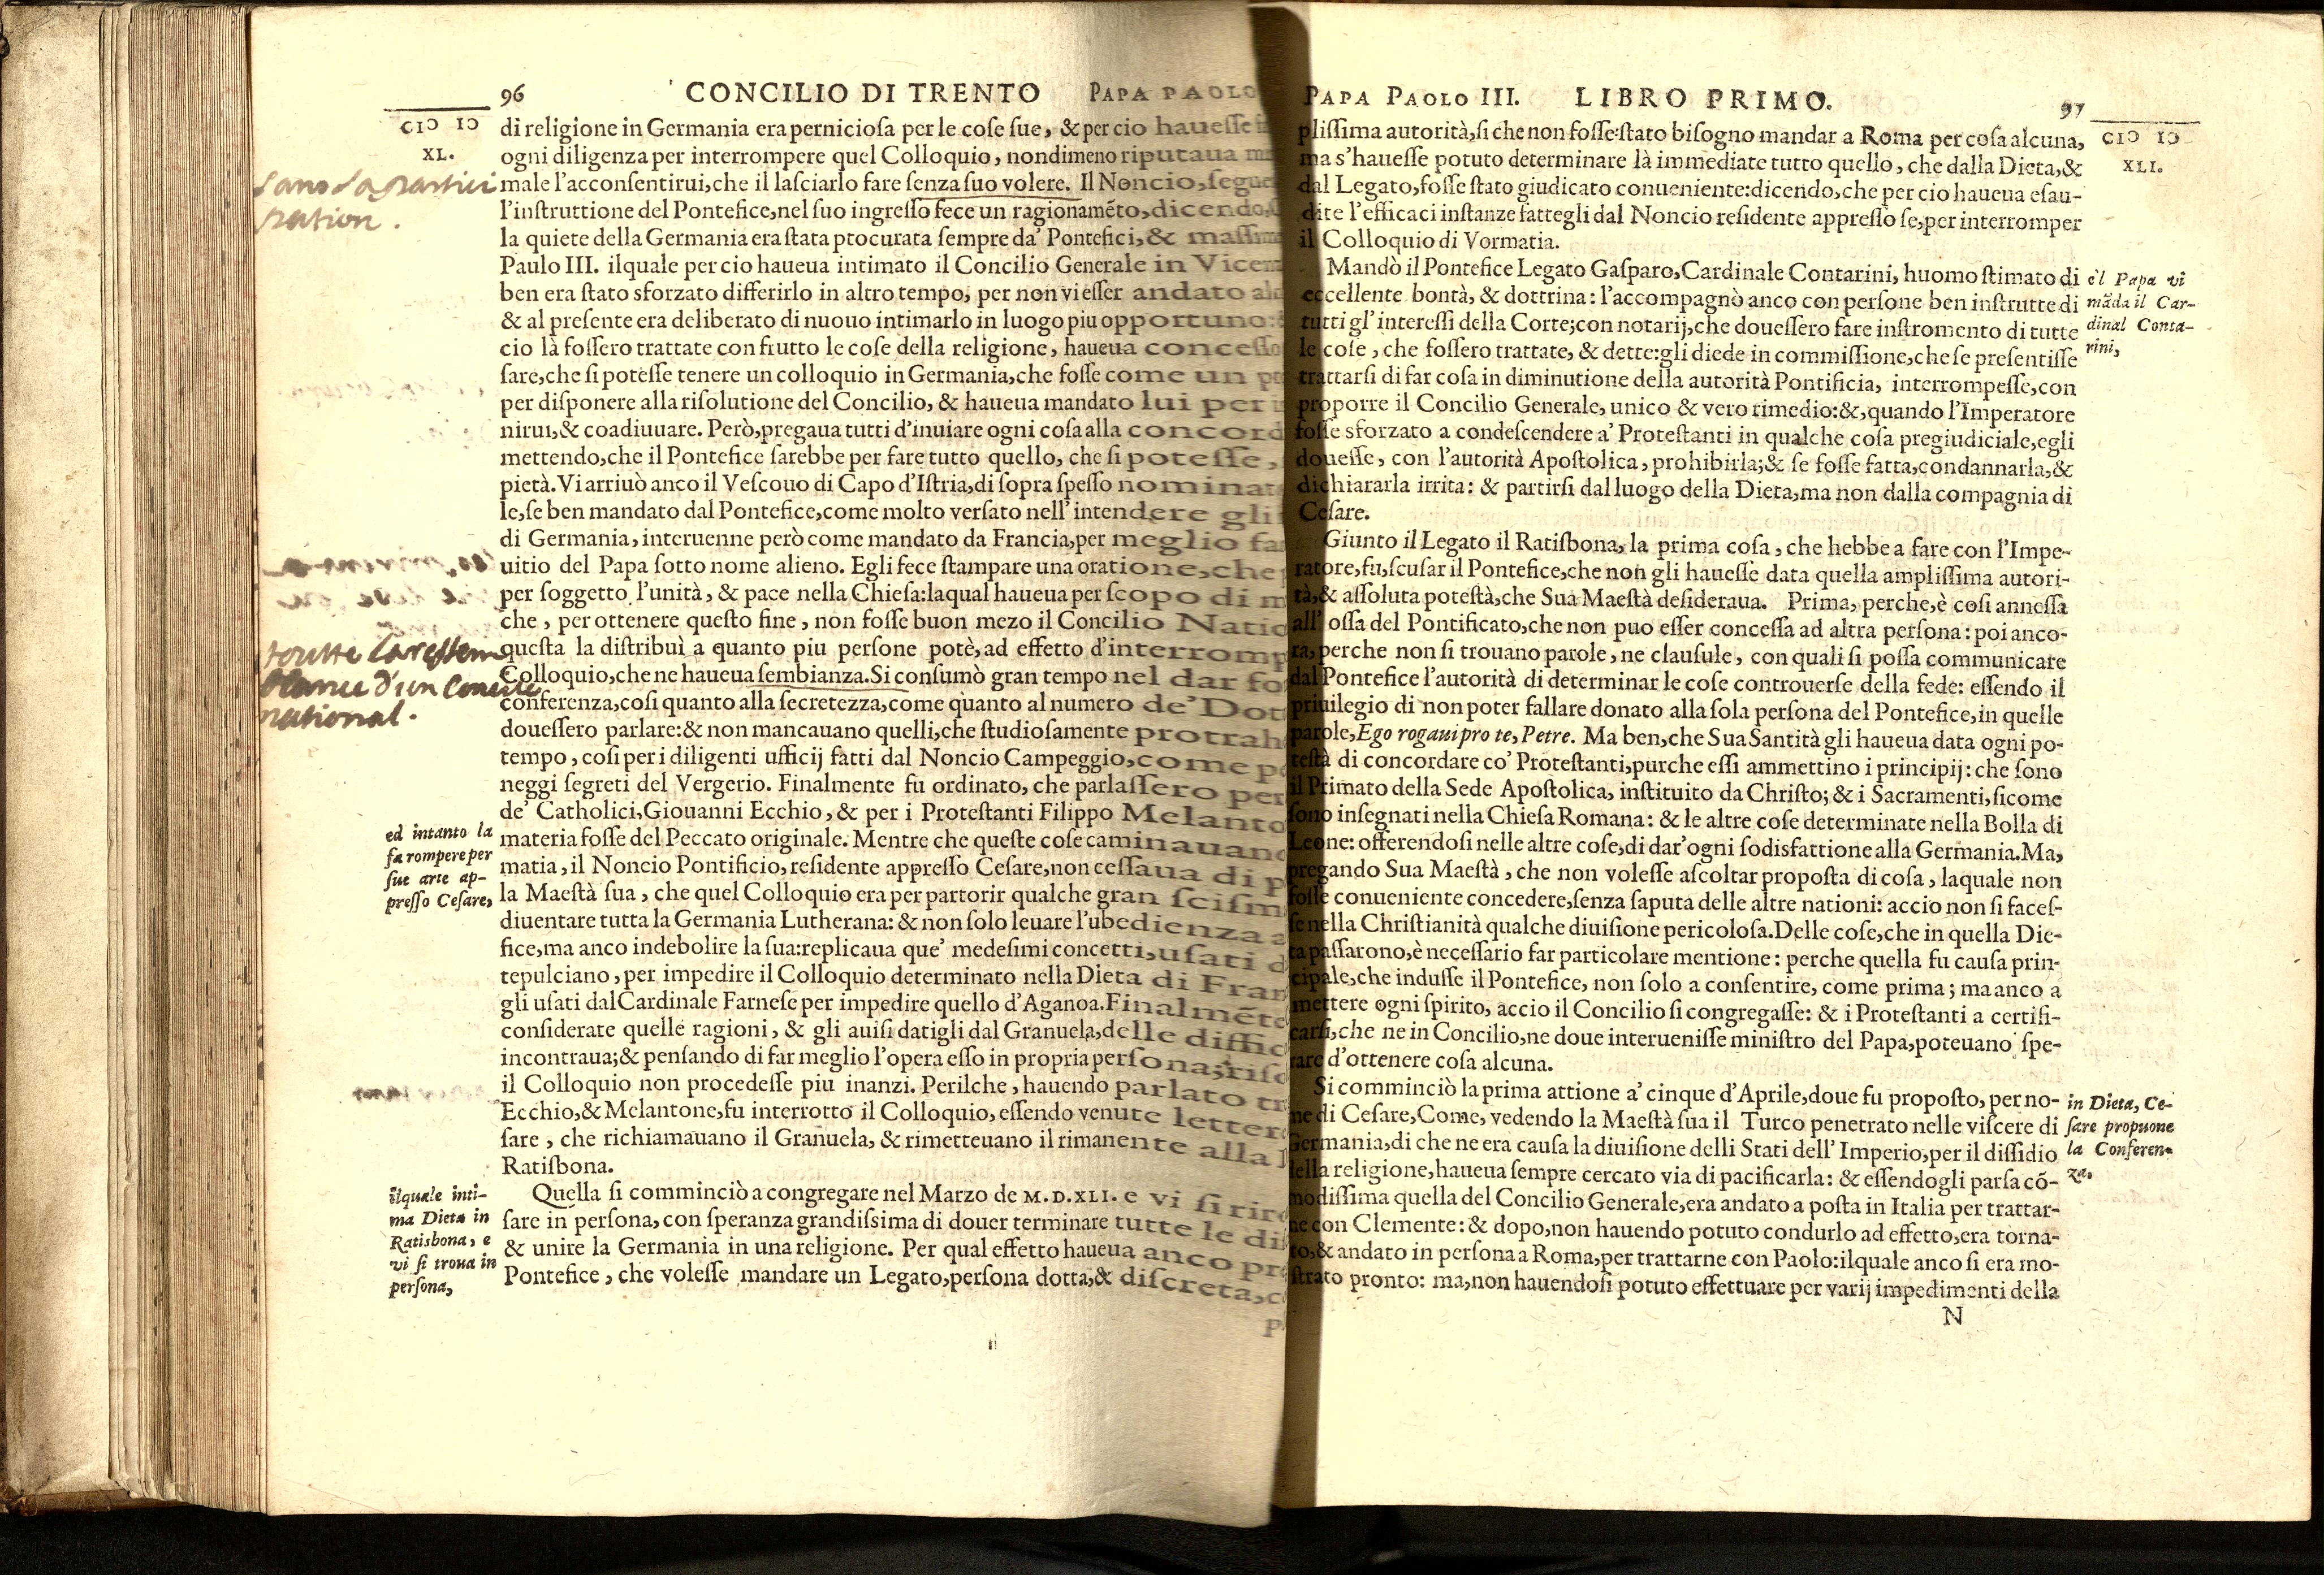 96 CONCILIO DI TRENTO PAPA PAOLO
CIƆ IƆ
XL.
di religione in Germania era perniciosa per le cose sue, & per cio hauesse
ogni diligenza per interrompere quel Colloquio, nondimeno riputaua
male l'acconsentirui, che il lasciarlo fare senza suo volere. Il Noncio,
l'instruttione del Pontefice, nel suo ingresso fece un ragionamẽto, dicendo,
la quiete della Germania era stata ptocurata sempre da' Pontefici, &
Paulo III. ilquale per cio haueua intimato il Concilio Generale in
ben era stato sforzato differirlo in altro tempo, per non vi esser andato
& al presente era deliberato di nuouo intimarlo in luogo piu opportuno:
cio là fossero trattate con frutto le cose della religione, haueua concesso
sare, che si potesse tenere un colloquio in Germania, che fosse come un
per disponere alla risolutione del Concilio, & haueua mandato lui per
nirui, & coadiuuare. Però, pregaua tutti d'inuiare ogni cosa alla
mettendo, che il Pontefice sarebbe per fare tutto quello, che si potesse,
pietà. Vi arriuò anco il Vescouo di Capo d'Istria, di sopra spesso
le, se ben mandato dal Pontefice, come molto versato nell'intendere gli
di Germania, interuenne però come mandato da Francia, per meglio
uitio del Papa sotto nome alieno. Egli fece stampare una oratione, che
per soggetto l'unità, & pace nella Chiesa: laqual haueua per scopo di
che, per ottenere questo fine, non fosse buon mezo il Concilio
questa la distribuì a quanto piu persone potè, ad effetto d'
Colloquio, che ne haueua sembianza. Si consumò gran tempo nel dar
conferenza, cosi quanto alla secretezza, come quanto al numero de'
douessero parlare: & non mancauano quelli, che studiosamente
tempo, cosi per i diligenti ufficij fatti dal Noncio Campeggio, come
neggi segreti del Vergerio. Finalmente fu ordinato, che parlassero per
de' Catholici, Giouanni Ecchio, & per i Protestanti Filippo
materia fosse del Peccato originale. Mentre che queste cose
matia, il Noncio Pontificio, residente appresso Cesare, non cessaua di
la Maestà sua, che quel Colloquio era per partorir qualche gran
diuentare tutta la Germania Lutherana: & non solo leuare l'ubedienza
fice, ma anco indebolire la sua: replicaua que' medesimi concetti, usati
tepulciano, per impedire il Colloquio determinato nella Dieta di
gli usati dal Cardinale Farnese per impedire quello d'Aganoa. Finalmẽte
considerate quelle ragioni, & gli auisi datigli dal Granuela, delle
incontraua; & pensando di far meglio l'opera esso in propria persona;
il Colloquio non procedesse piu inanzi. Perilche, hauendo parlato
Ecchio, & Melantone, fu interrotto il Colloquio, essendo venute
sare, che richiamauano il Granuela, & rimetteuano il rimanente alla
Ratisbona.
Quella si comminciò a congregare nel Marzo de M.D.XLI. e vi si
sare in persona, con speranza grandissima di douer terminare tutte le
& unire la Germania in una religione. Per qual effetto haueua anco
Pontefice, che volesse mandare un Legato, persona dotta, & discreta,
sans sa partici
pation.
toutte la ressem
blance d'un Concile
national.
ed intanto la
fa rompere per
sue arte ap-
presso Cesare,
ilquale inti-
ma Dieta in
Ratisbona, e
vi si troua in
persona,
PAPA PAOLO III. LIBRO PRIMO. 97
CIƆ IƆ
XLI.
plissima autorità, si che non fosse stato bisogno mandar a Roma per cosa alcuna,
ma s'hauesse potuto determinare là immediate tutto quello, che dalla Dieta, &
dal Legato, fosse stato giudicato conueniente: dicendo, che per cio haueua esau-
dite l'efficaci instanze fattegli dal Noncio residente appresso se, per interromper
il Colloquio di Vormatia.
Mandò il Pontefice Legato Gasparo, Cardinale Contarini, huomo stimato di
eccellente bontà, & dottrina: l'accompagnò anco con persone ben instrutte di
tutti gl'interessi della Corte; con notarij, che douessero fare instromento di tutte
le cose, che fossero trattate, & dette: gli diede in commissione, che se presentisse
trattarsi di far cosa in diminutione della autorità Pontificia, interrompesse, con
proporre il Concilio Generale, unico & vero rimedio: &, quando l'Imperatore
fosse sforzato a condescendere a' Protestanti in qualche cosa pregiudiciale, egli
douesse, con l'autorità Apostolica, prohibirla; & se fosse fatta, condannarla, &
dichiararla irrita: & partirsi dal luogo della Dieta, ma non dalla compagnia di
Cesare.
Giunto il Legato il Ratisbona, la prima cosa, che hebbe a fare con l'Impe-
ratore, fu, scusar il Pontefice, che non gli hauesse data quella amplissima autori-
tà, & assoluta potestà, che Sua Maestà desideraua. Prima, perche, è cosi annessa
all'ossa del Pontificato, che non puo esser concessa ad altra persona: poi anco-
ra, perche non si trouano parole, ne clausule, con quali si possa communicare
dal Pontefice l'autorità di determinar le cose controuerse della fede: essendo il
priuilegio di non poter fallare donato alla sola persona del Pontefice, in quelle
parole, Ego rogaui pro te, Petre. Ma ben, che Sua Santità gli haueua data ogni po-
testà di concordare co' Protestanti, purche essi ammettino i principij: che sono
il Primato della Sede Apostolica, instituito da Christo; & i Sacramenti, sicome
sono insegnati nella Chiesa Romana: & le altre cose determinate nella Bolla di
Leone: offerendosi nelle altre cose, di dar' ogni sodisfattione alla Germania. Ma,
pregando Sua Maestà, che non volesse ascoltar proposta di cosa, laquale non
fosse conueniente concedere, senza saputa delle altre nationi: accio non si faces-
se nella Christianità qualche diuisione pericolosa. Delle cose, che in quella Die-
ta passarono, è necessario far particolare mentione: perche quella fu causa prin-
cipale, che indusse il Pontefice, non solo a consentire, come prima; ma anco a
mettere ogni spirito, accio il Concilio si congregasse: & i Protestanti a certifi-
carsi, che ne in Concilio, ne doue interuenisse ministro del Papa, poteuano spe-
rare d'ottenere cosa alcuna.
Si comminciò la prima attione a' cinque d'Aprile, doue fu proposto, per no-
me di Cesare, Come, vedendo la Maestà sua il Turco penetrato nelle viscere di
Germania, di che ne era causa la diuisione delli Stati dell'Imperio, per il dissidio
della religione, haueua sempre cercato via di pacificarla: & essendogli parsa cõ-
modissima quella del Concilio Generale, era andato a posta in Italia per trattar-
ne con Clemente: & dopo, non hauendo potuto condurlo ad effetto, era torna-
to, & andato in persona a Roma, per trattarne con Paolo: ilquale anco si era mo-
strato pronto: ma, non hauendosi potuto effettuare per varij impedimenti della
N
e'l Papa vi
mãda il Car-
dinal Conta-
rini,
in Dieta, Ce-
sare propuone
la Conferen-
za.